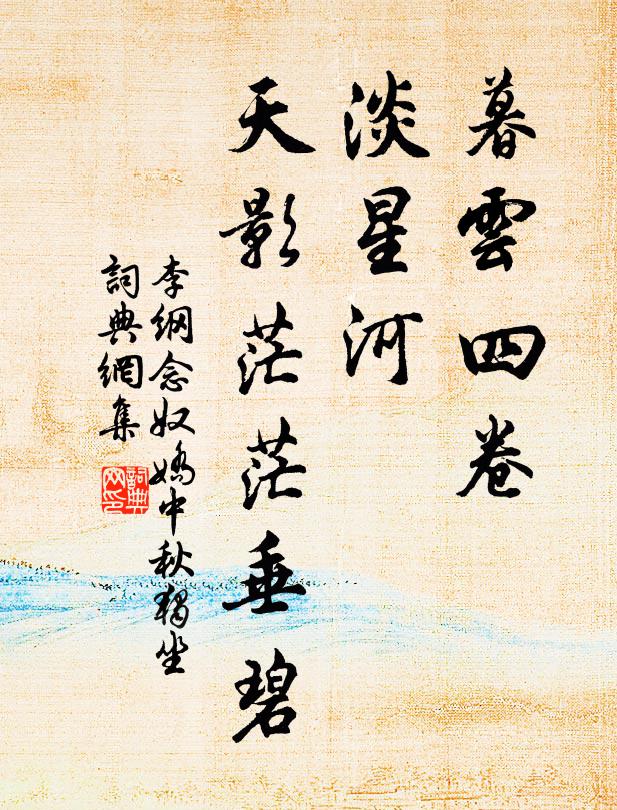 暮雲四卷
淡星河
天影茫茫垂碧
李綱念奴嬌中秋獨坐
詞典網集
詞典網印